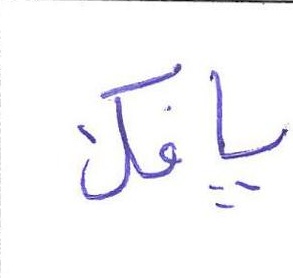 يافكن